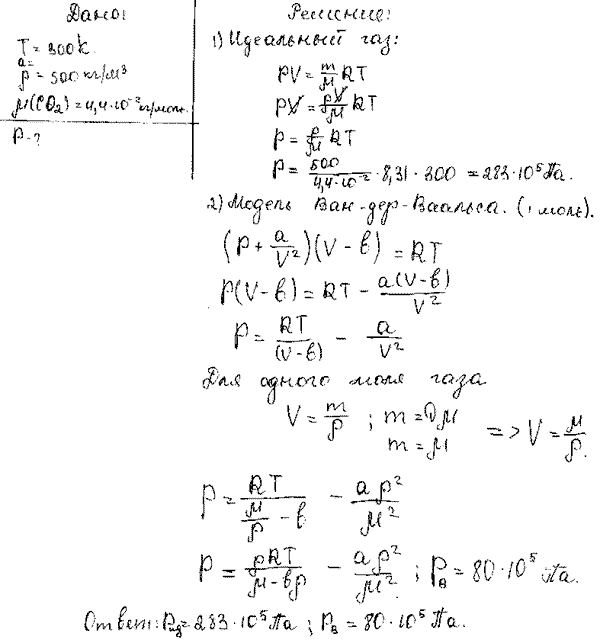 Дано:
T = 300К.
a =
ρ = 500 кг/м³
μ(CO₂) = 4,4·10⁻² кг/моль.
P - ?
Решение:
1) Идеальный газ:
PV = m/μ RT
PV = ρV/μ RT
P = ρ/μ RT
P = 500/(4,4·10⁻²) · 8,31 · 300 = 283·10⁵ Па.
2) Модель Ван-дер-Ваальса. (1 моль).
(P + a/V²)(V - в) = RT
P(V - в) = RT - a(V-в)/V²
P = RT/(V-в) - a/V²
Для одного моля газа
V = m/ρ ; m = νμ
m = μ => V = μ/ρ.
P = RT/(μ/ρ - в) - aρ²/μ²
P = ρRT/(μ-вρ) - aρ²/μ² ; Pв = 80·10⁵ Па.
Ответ: Pид = 283·10⁵ Па ; Pв = 80·10⁵ Па.